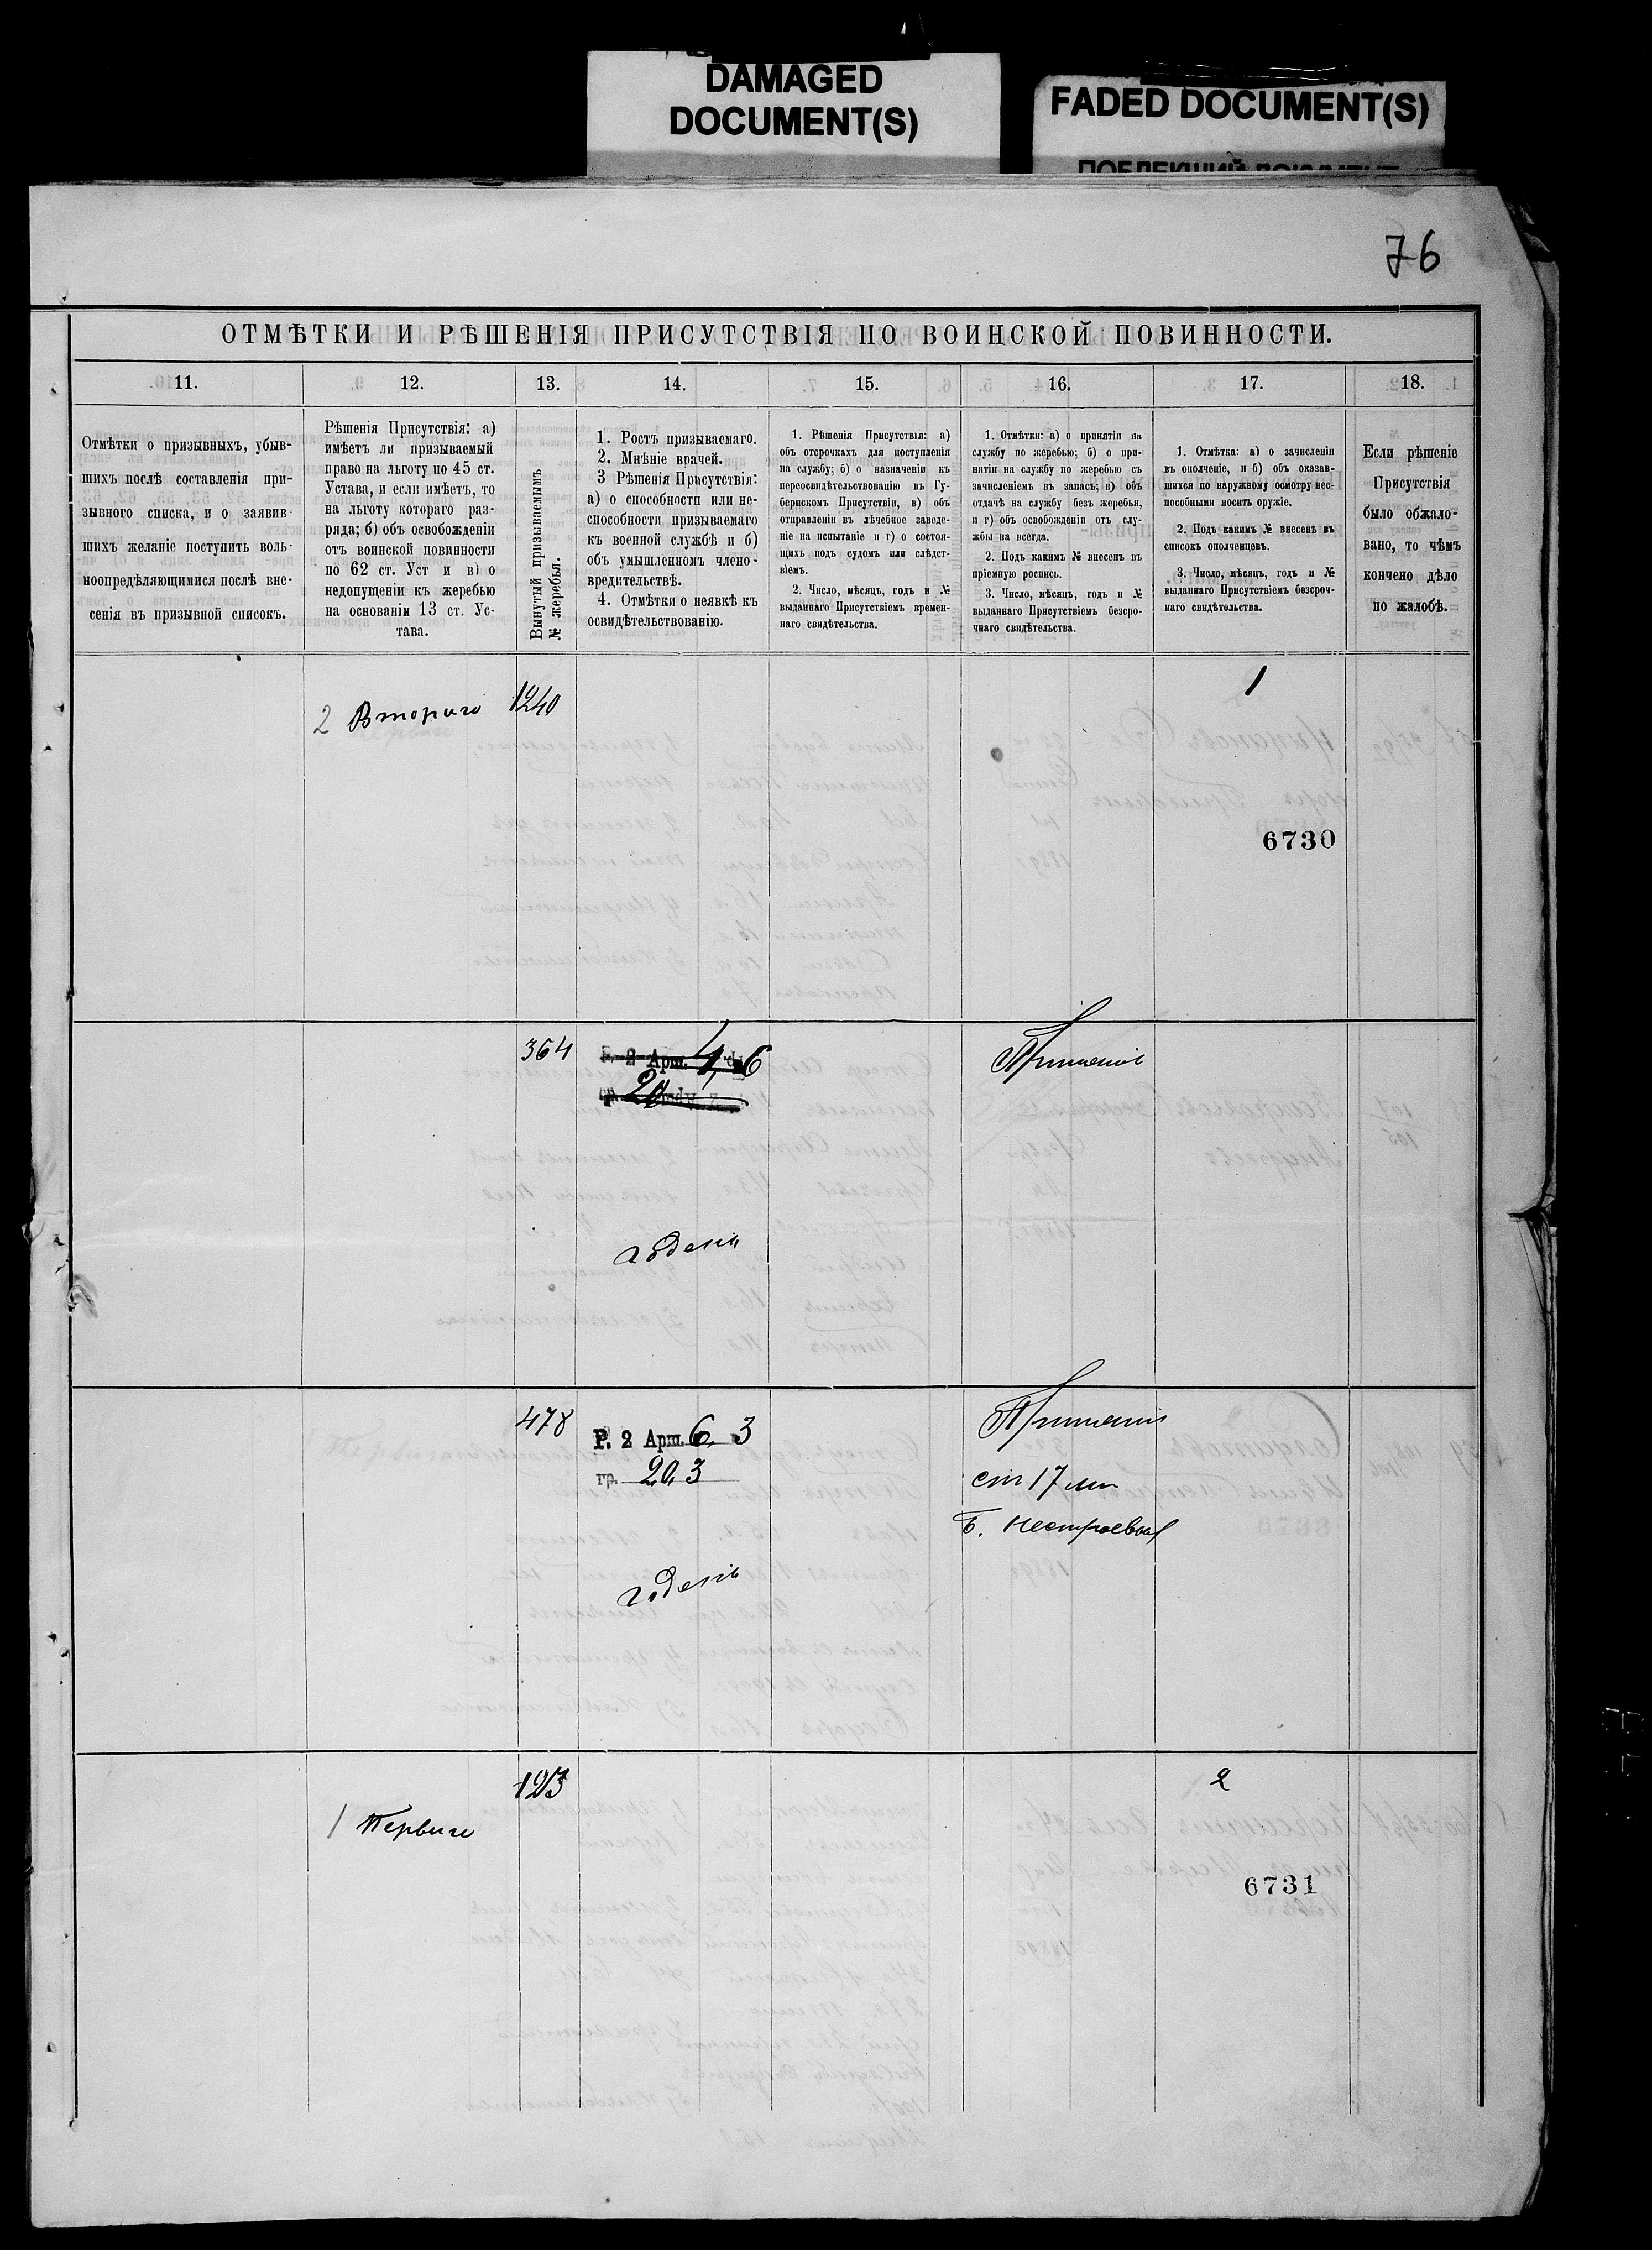 DAMAGED
DOCUMENT(S)
FADED DOCUMENT(S)
76
ОТМѢТКИ И РѢШЕНІЯ ПРИСУТСТВІЯ ПО ВОИНСКОЙ ПОВИННОСТИ.
11.
12.
13.
14.
15.
16.
17.
18.
Отмѣтки о призывныхъ, убыв-
шихъ послѣ составленія при-
зывного списка, и о заявив-
шихъ желаніе поступить воль-
ноопредѣляющимися послѣ вне-
сенія въ призывной списокъ.
Рѣшенія Присутствія: а)
имѣетъ ли призываемый
право на льготу по 45 ст.
Устава, и если имѣетъ, то
на льготу котораго раз-
ряда; б) объ освобожденіи
отъ воинской повинности
по 62 ст. Уст и в) о
недопущеніи къ жеребью
на основаніи 13 ст. Ус-
тава.
Вынутый призываемымъ
№ жеребья.
1. Ростъ призываемаго.
2. Мнѣніе врачей.
3 Рѣшенія Присутствія:
а) о способности или не-
способности призываемаго
къ военной службѣ и б)
объ умышленномъ члено-
вредительствѣ.
4. Отмѣтки о неявкѣ къ
освидѣтельствованію.
1. Рѣшенія Присутствія: а)
объ отсрочкахъ для поступленія
на службу; б) о назначеніи къ
переосвидѣтельствованію въ Гу-
бернскомъ Присутствіи, в) объ
отправленіи въ лѣчебное заведе-
ніе на испытаніе и г) о состоя-
щихъ подъ судомъ или слѣдст-
віемъ.
2. Число, мѣсяцъ, годъ и №
выданнаго Присутствіемъ времен-
наго свидѣтельства.
1. Отмѣтки: а) о принятіи на
службу по жеребью; б) о при-
нятіи на службу по жеребью съ
зачисленіемъ въ запасъ; в) объ
отдачѣ на службу безъ жеребья,
и г) объ освобожденіи отъ слу-
жбы на всегда.
2. Подъ какимъ № внесенъ въ
пріемную роспись.
3. Число, мѣсяцъ, годъ и №
выданнаго Присутствіемъ безсро-
чнаго свидѣтельства.
1. Отмѣтка: а) о зачисленіи
въ ополченіе, и б) объ оказав-
шихся по наружному осмотру нес-
пособными носить оружіе.
2. Подъ какимъ № внесенъ въ
списокъ ополченцевъ.
3. Число, мѣсяцъ, годъ и №
выданнаго Присутствіемъ безсроч-
наго свидѣтельства.
Если рѣшеніе
Присутствія
было обжало-
вано, то чѣмъ
кончено дѣло
по жалобѣ.
2 Второго
1240
1
6730
364
2 Арш. 4, 6
годенъ
Принятъ
478
Р. 2 Арш. 6, 3
гр. 20, 3
годенъ
Принятъ
17
Б. нестроевой
123
1 Перваго
2
6731